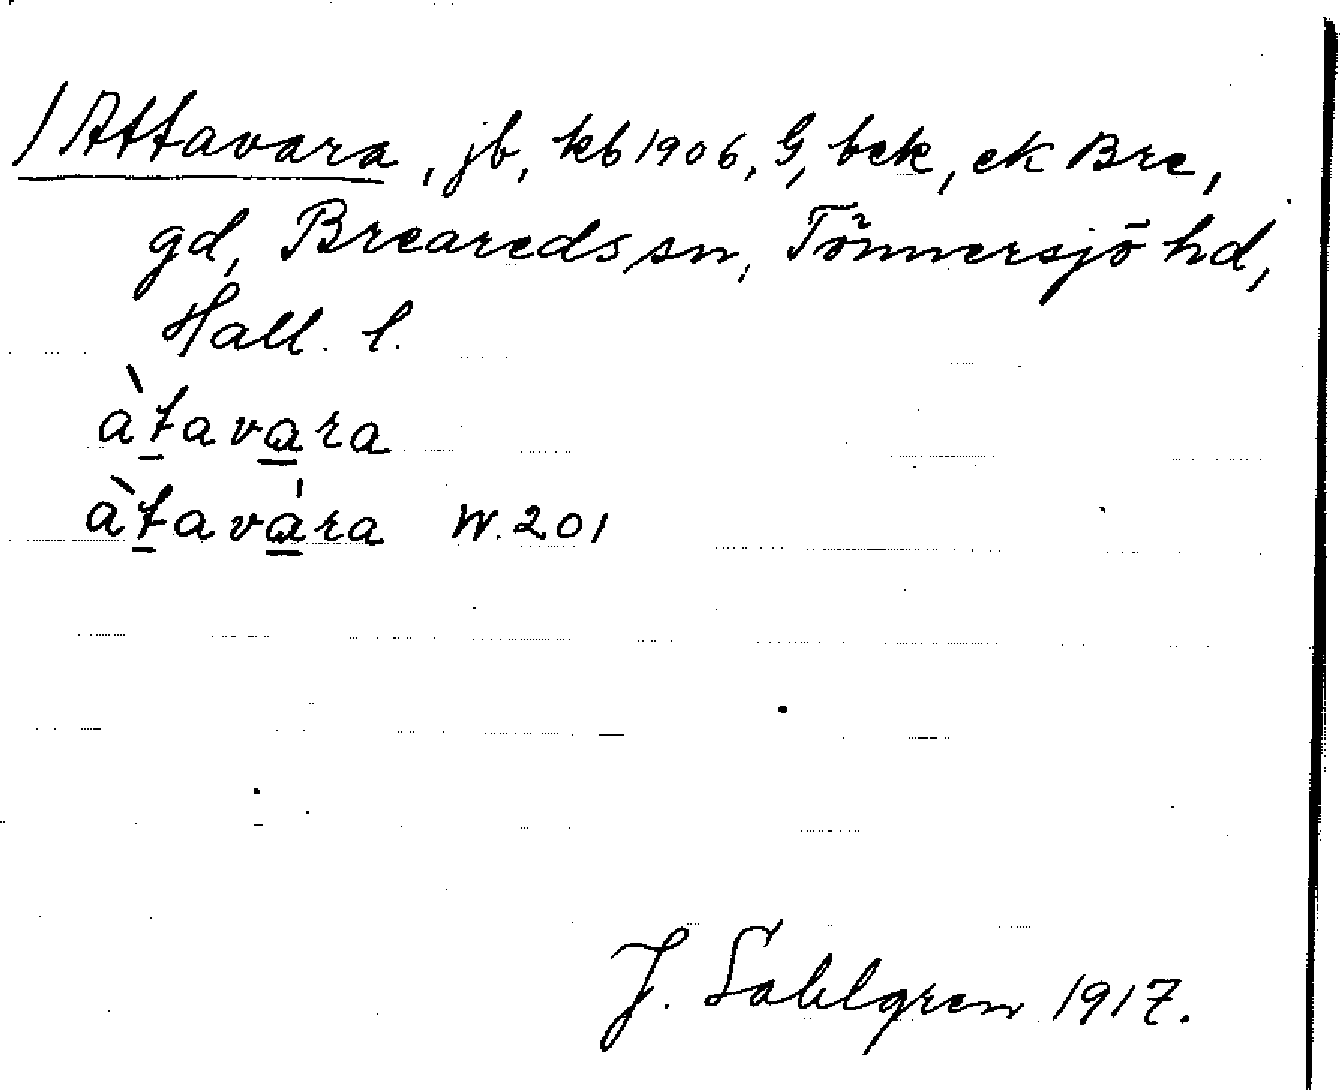 /Attavara, jb, kb 1906, G, bek, ek Bre,
gd, Breareds sn, Tönnersjö hd,
Hall. l.
àtavara
àtavára W. 201
J. Sahlgren 1917.